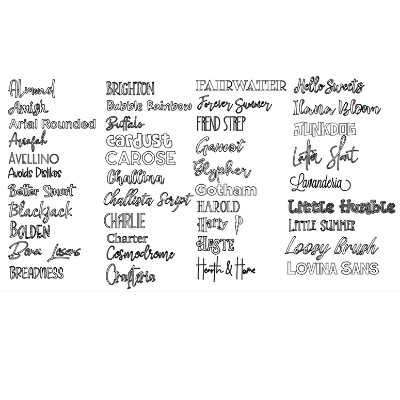 Amish
Arial Rounded
AVELLINO
Avoids Dislikes
Better Smart
Blackjack
BOLDEN
BREADNESS
BRIGHTON
Bubble Rainbow
Buffalo
cardust
CAROSE
Challina
Challista Script
CHARLIE
Charter
Cosmodrome
Crafteria
FAIRWATER
Forever Summer
FRIEND STRIP
Gamest
Glypher
Gotham
HAROLD
Harry P
HASTE
Hearth & Home
Hello Sweets
Ilana Bloom
JUNKDOG
Latter Shart
Lavanderia
Little Humble
LITTLE SUMMER
Loosy Brush
LOVINA SANS